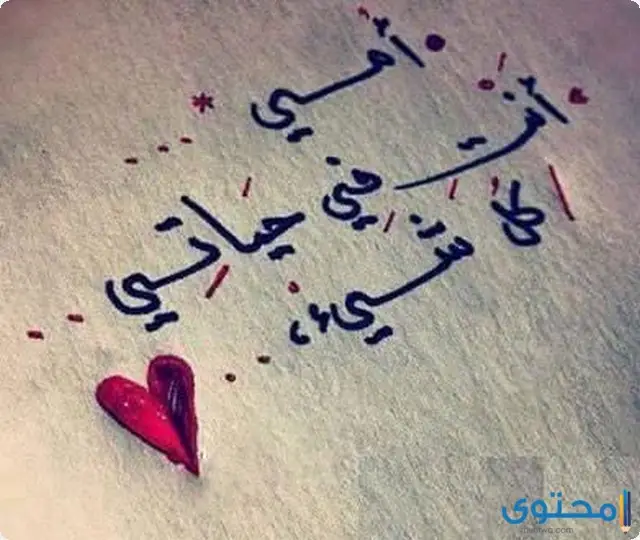 أمي
أنتِ
كل شيء،
في حياتي
محتوى